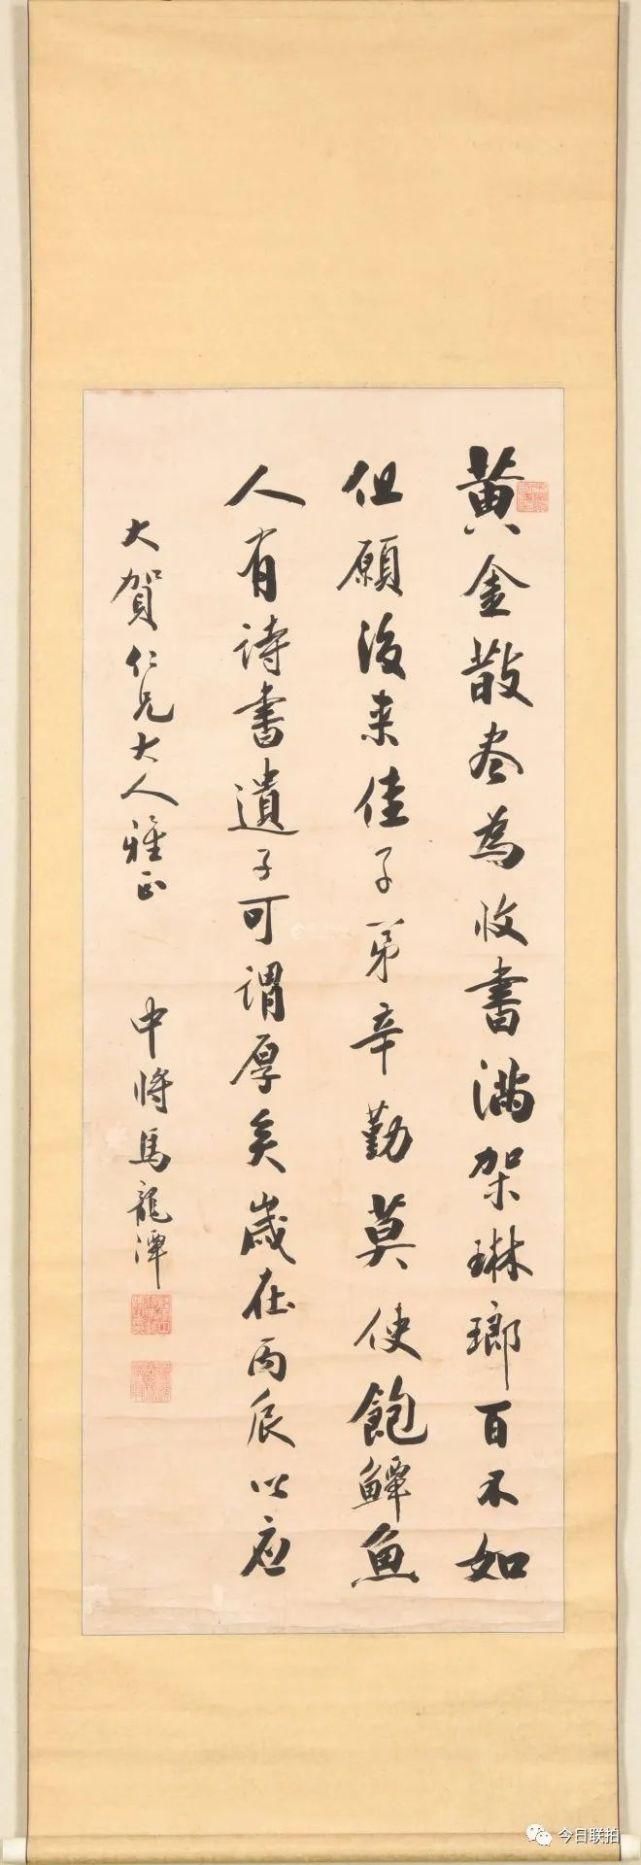 黄金散尽為收書滿架琳瑯百不如
但願後来佳子弟辛勤莫使飽蟫魚
人有詩書遺子可謂厚矣歲在丙辰以应
大賀仁兄大人雅正
中將馬龍潭
今日联拍